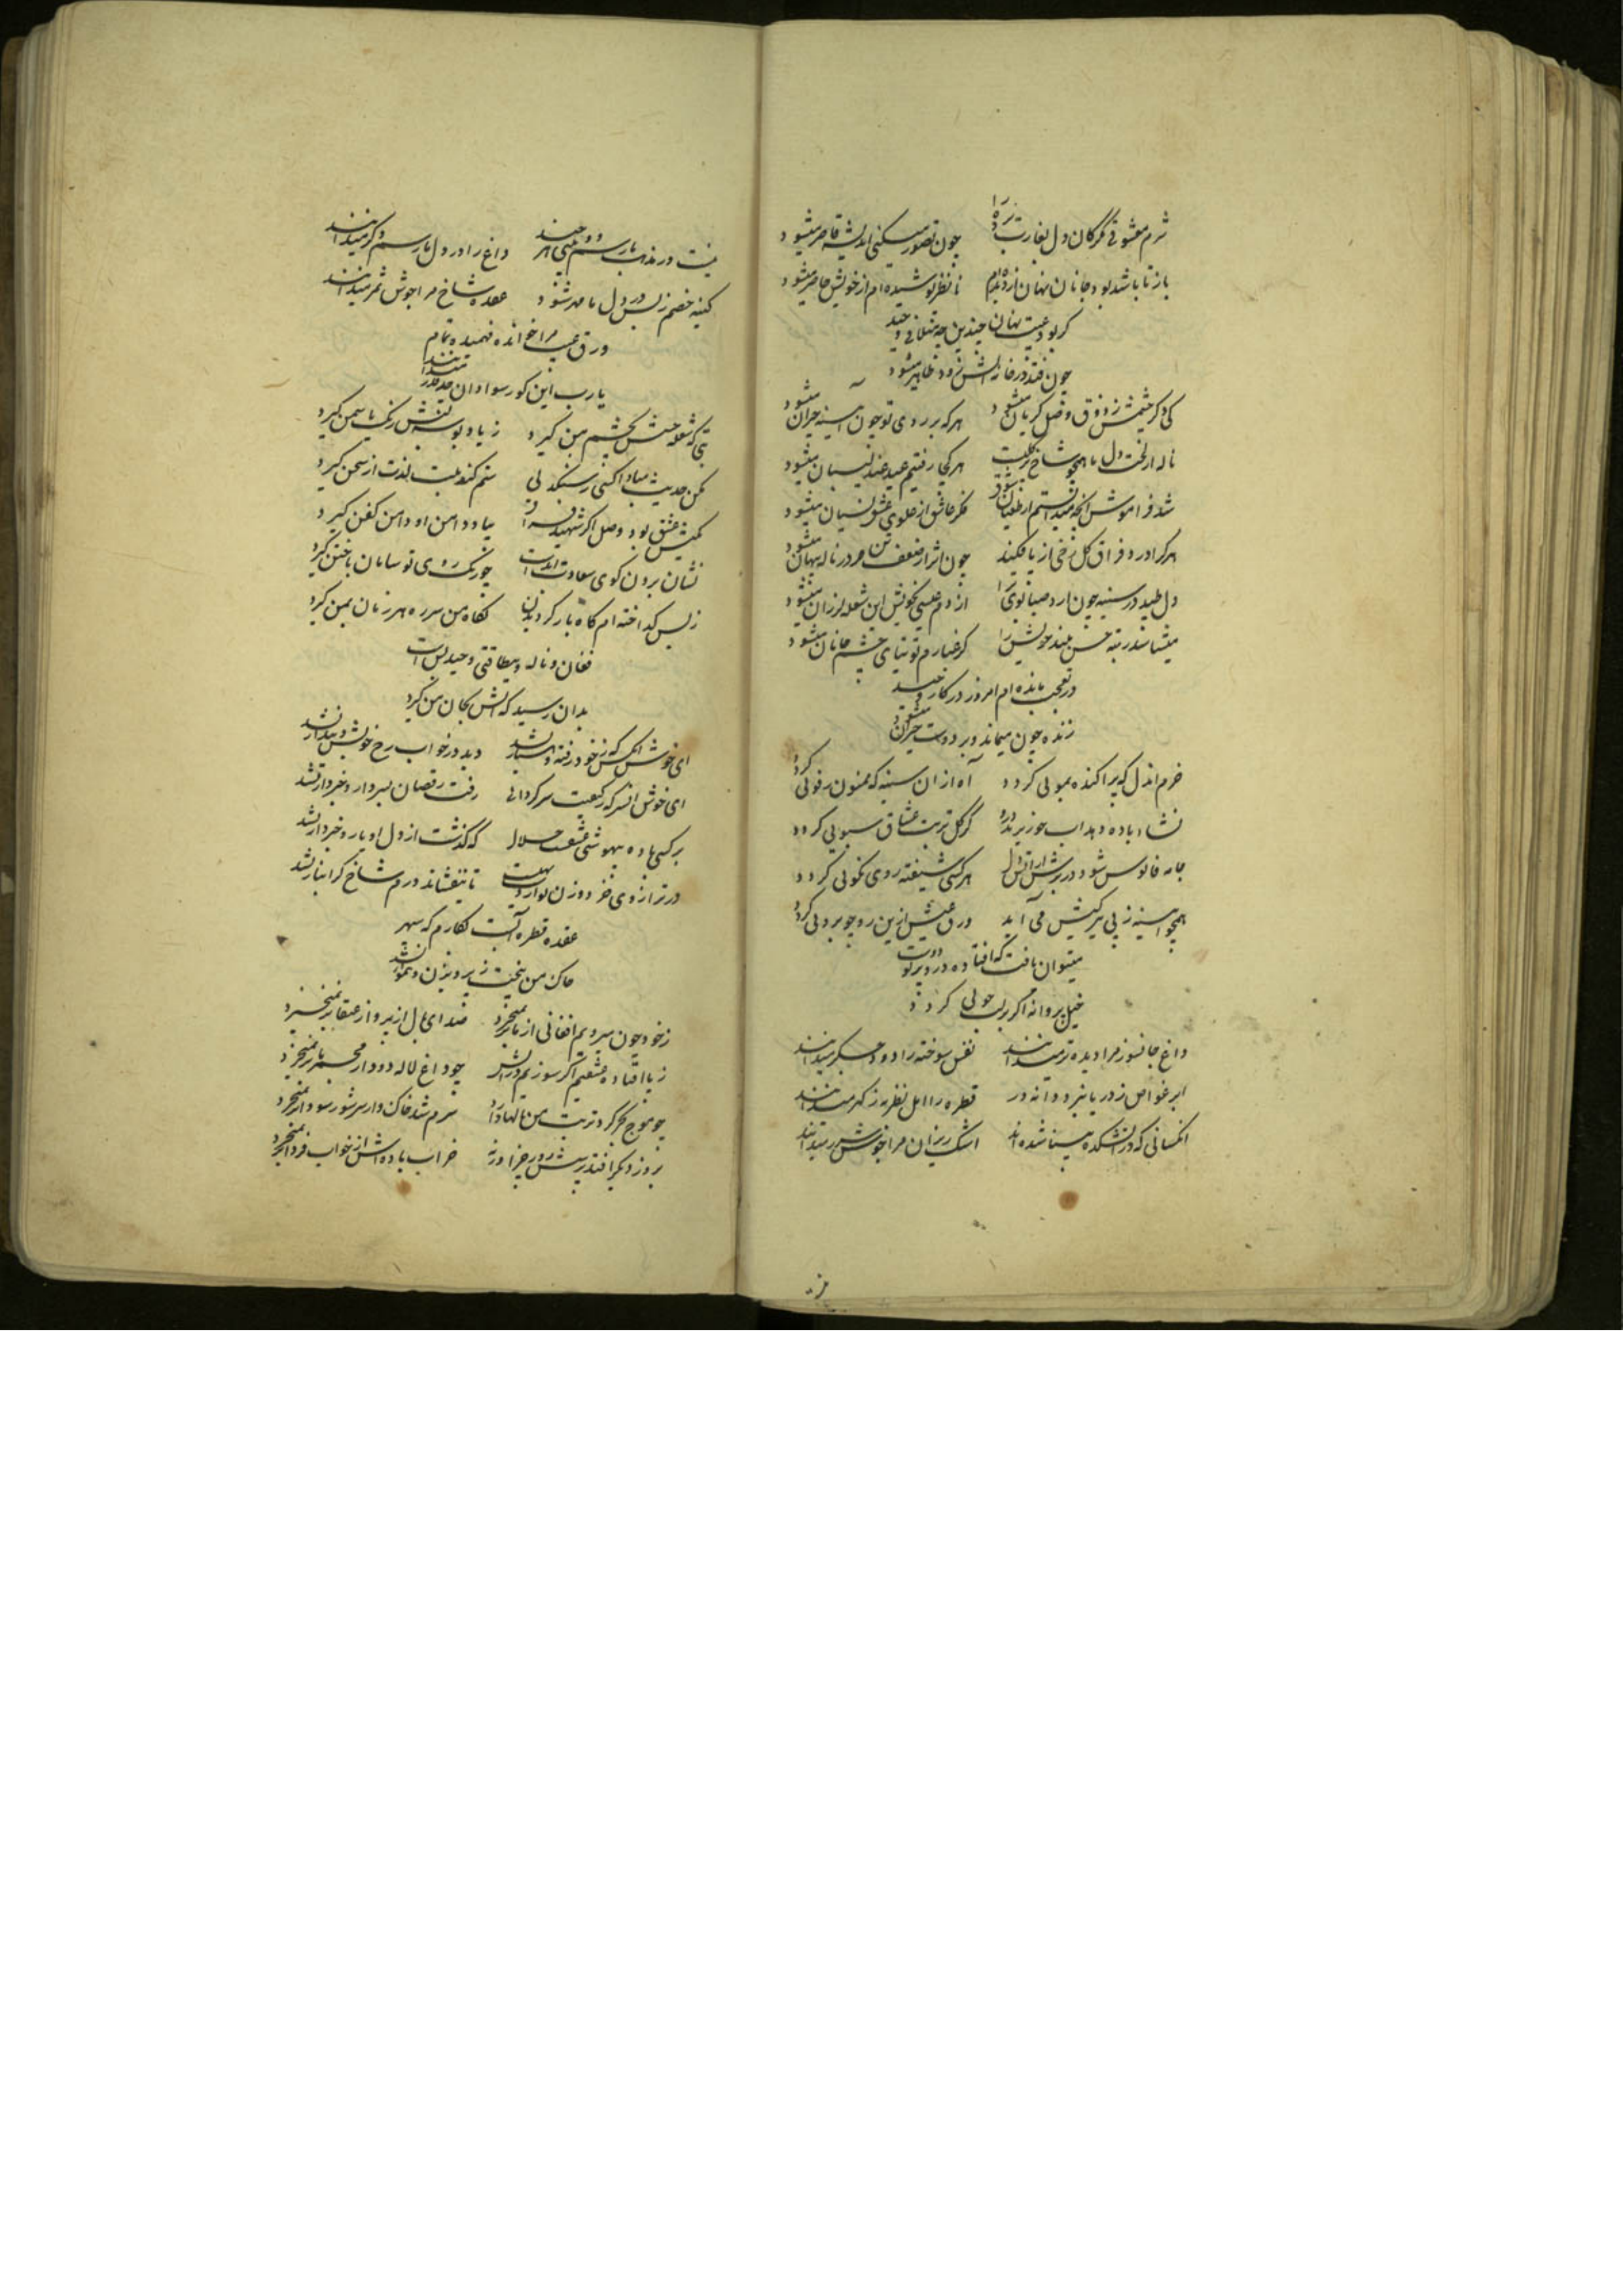 شرم معشوقی مژگان دل بغارت برده را چون تصور میکنی اندیشه قاصر میشود
باز تا باشد بود جانان نهان از دیده ام تا نظر پوشیده ام از خویش حاضر میشود
کر بود عیبت نهان چندین چه مینالی وحید
چون فتد در خانه آتش زود ظاهر میشود
کی دکر چشمش ز ذوق وصل کریان میشود هرکه بر روی تو چون آیینه حیران میشود
ناله از لخت دل ما همچو شاخ پر کلیست هر کجا رفتیم عید عندلیبان میشود
شد فراموش آنچه میدانستم از طغیان شوق فکر عاشق از علوی عشق نسیان میشود
هرکرا در فراق کلرخی از پا فکند چون اثر از ضعف تن در ناله پنهان میشود
دل طپد در سینه چون آرد صبا بوی ترا از دم عیسی نخویش این شعله لرزان میشود
میشناسد رتبه حسن بلند خویش را کر غبارم توتیای چشم جانان میشود
در تعجب مانده ام امروز در کار وحید
زنده چون میماند و بر دوست حیران میشود
خرم آندل که پراکنده بمویی کردد آه از آن سینه که ممنون رفویی کردد
نشاء باده دهد آب چو زیر بدره کر کل تربت عشاق سبویی کردد
جامه فانوس شود در برش از آتش دل هرکسی شیفته روی نکویی کردد
همچو آیینه ز پی برکیش می آید ورق عیش ازین رو چو برویی کردد
میتوان یافت که افتاده در او پرتو دوست
خیل پروانه اکر بر لب جویی کردد
داغ جانسوز مرا دیده تر میدانند نفس سوخته را دود جکر میدانند
ابر غواص ز دریا نبرد دانه در قطره را اهل نظر به ز کهر میدانند
آنکسانی که در آتشکده مینا شده اند اشک ریزان مرا خویش شرر میدانند
نیست در مذهب ما رسم دویی هر چند داغ را در دل ما رسم دکر میدانند
کینه خصم ز بس در دل ما مهر شود عقده شاخ مرا جوش ثمر میدانند
ورق عیب مرا خوانده فهمیده تمام
یارب این کور سوادان چقدر میدانند
بتی که شعله حسنش بچشم من کیرد ز یاد بوسه لبش رنک یاسمن کیرد
مکن حدیث مبادا کسی ز سنکدلی ستم کند بلبت لذت از سخن کیرد
بکیش عشق بود وصل اکر شهید فراق بیاد دامن او دامن کفن کیرد
نشان برون کوی سعادت ابدست چو رنک روی تو سامان باختن کیرد
ز بس کداخته ام کاه بار کردیدن نکاه من سر ره هر زمان بمن کیرد
فغان و ناله و بیطاقتی وحید بس است
بدان رسید که آتش بجان من کیرد
ای خوش آنکس که ز خود رفته و هشیار نشد دید در خواب رخ خویش و بیدار نشد
ای خوش آنسر که ز کیفیت سرکردانی رفت رقصان بسر دار و خبردار نشد
بر کسی باده بیهوشی عشقست حلال که کذشت از دل او یار و خبردار نشد
در ترازوی خرد وزن تواردست تهی تا نیفشاند درم شاخ کرانبار نشد
عقده قطره آبست بکارم که سپهر
خاک من بیخت ز پرویزن و هموار نشد
ز خود چون میرویم افغانی از ما بر نمیخیزد صدای بال از پرواز عنقا بر نمیخیزد
ز پا افتاده عشقیم اکر سوزیم در آتش چو داغ لاله دود از مجمر ما بر نمیخیزد
چو موج بحر کرد تربت من نالها دارد سرم شد خاک و از سر شور سودا بر نمیخیزد
بروز دیکر افتد پرسش روز جزا ورنه خراب باده اش از خواب فردا بر نمیخیزد